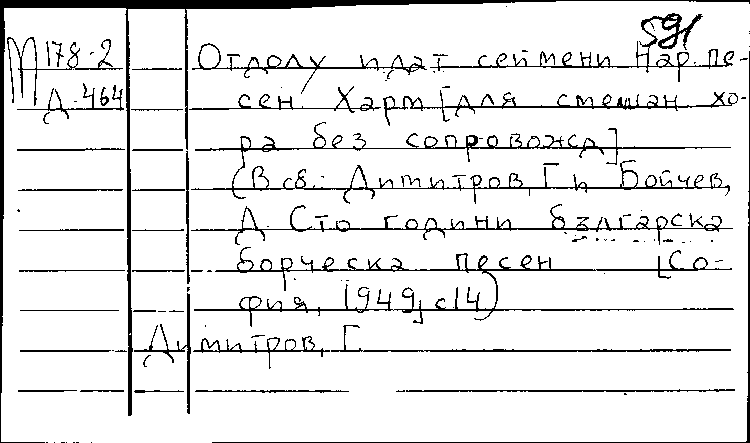 591
М 178-2
Д-464
Отдолу идат сеймени Нар. пе-
сен. Харм [для смешан хо-
ра без сопровожд]
(В сб.: Димитров, Г и Бойчев,
Д Сто години българска
борческа песен [Со-
фия, 1949] с14)
Димитров, Г.